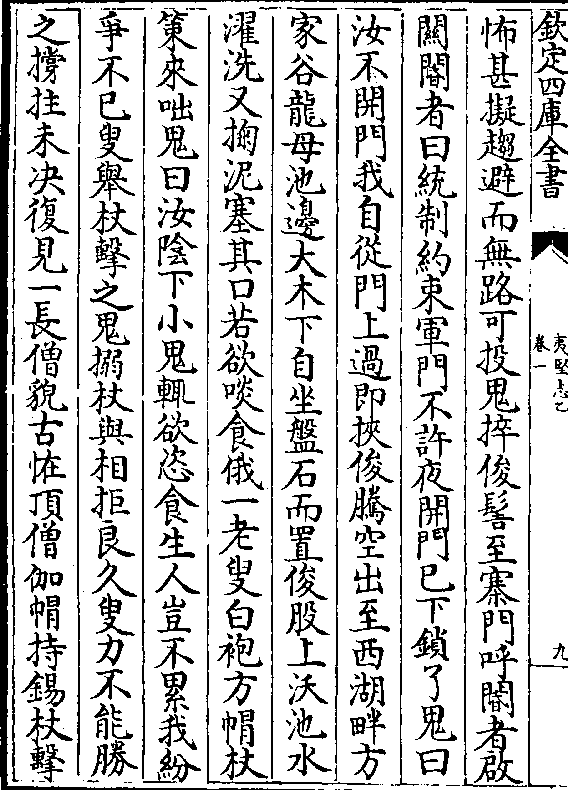 欽定四庫全書
夷堅志乙
卷一
九
怖甚擬趨避而無路可投鬼捽俊髻至寨門呼閽者啟
關閽者曰統制約束軍門不許夜開門已下鎖了鬼曰
汝不開門我自從門上過即挾俊騰空出至西湖畔方
家谷龍母池邊大木下自坐盤石而置俊股上沃池水
濯洗又掬泥塞其口若欲啖食俄一老叟白袍方帽杖
策來咄鬼曰汝隂下小鬼輒欲恣食生人豈不累我紛
爭不已叟舉杖擊之鬼搦杖與相拒良久叟力不能勝
之撐拄未決復見一長僧貌古恠頂僧伽帽持錫杖擊